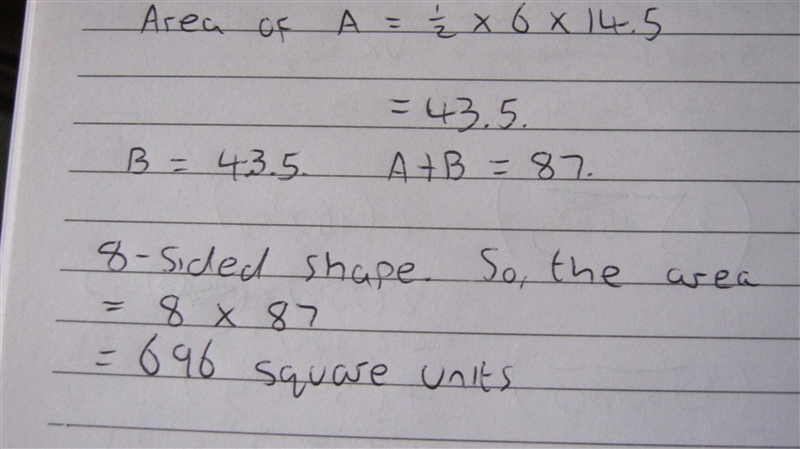 Area of A = ½ × 6 × 14.5
= 43.5.
B = 43.5. A+B = 87.
8-sided shape. So, the area
= 8 × 87
= 696 square units